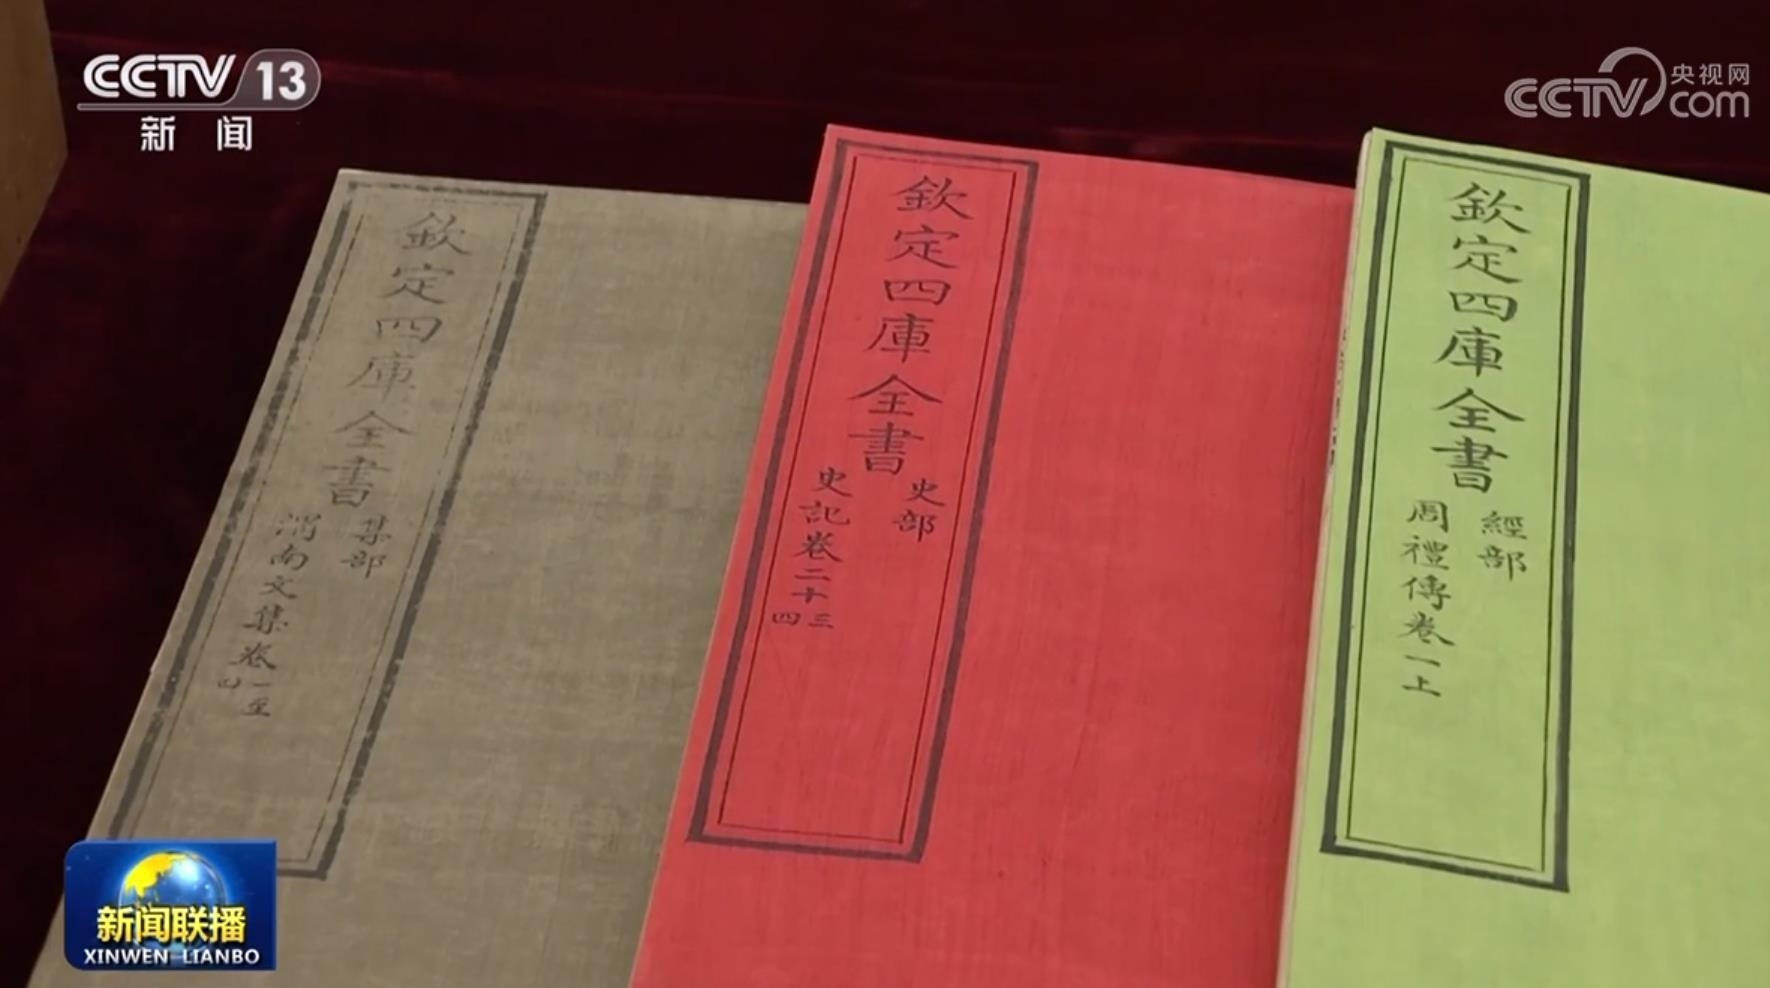 CCTV 13
新闻
央视网
CCTV com
欽定四庫全書
集部
渭南文集卷一至四
欽定四庫全書
史部
史記卷二十三四
欽定四庫全書
經部
周禮傳卷一上
新闻联播
XINWEN LIANBO